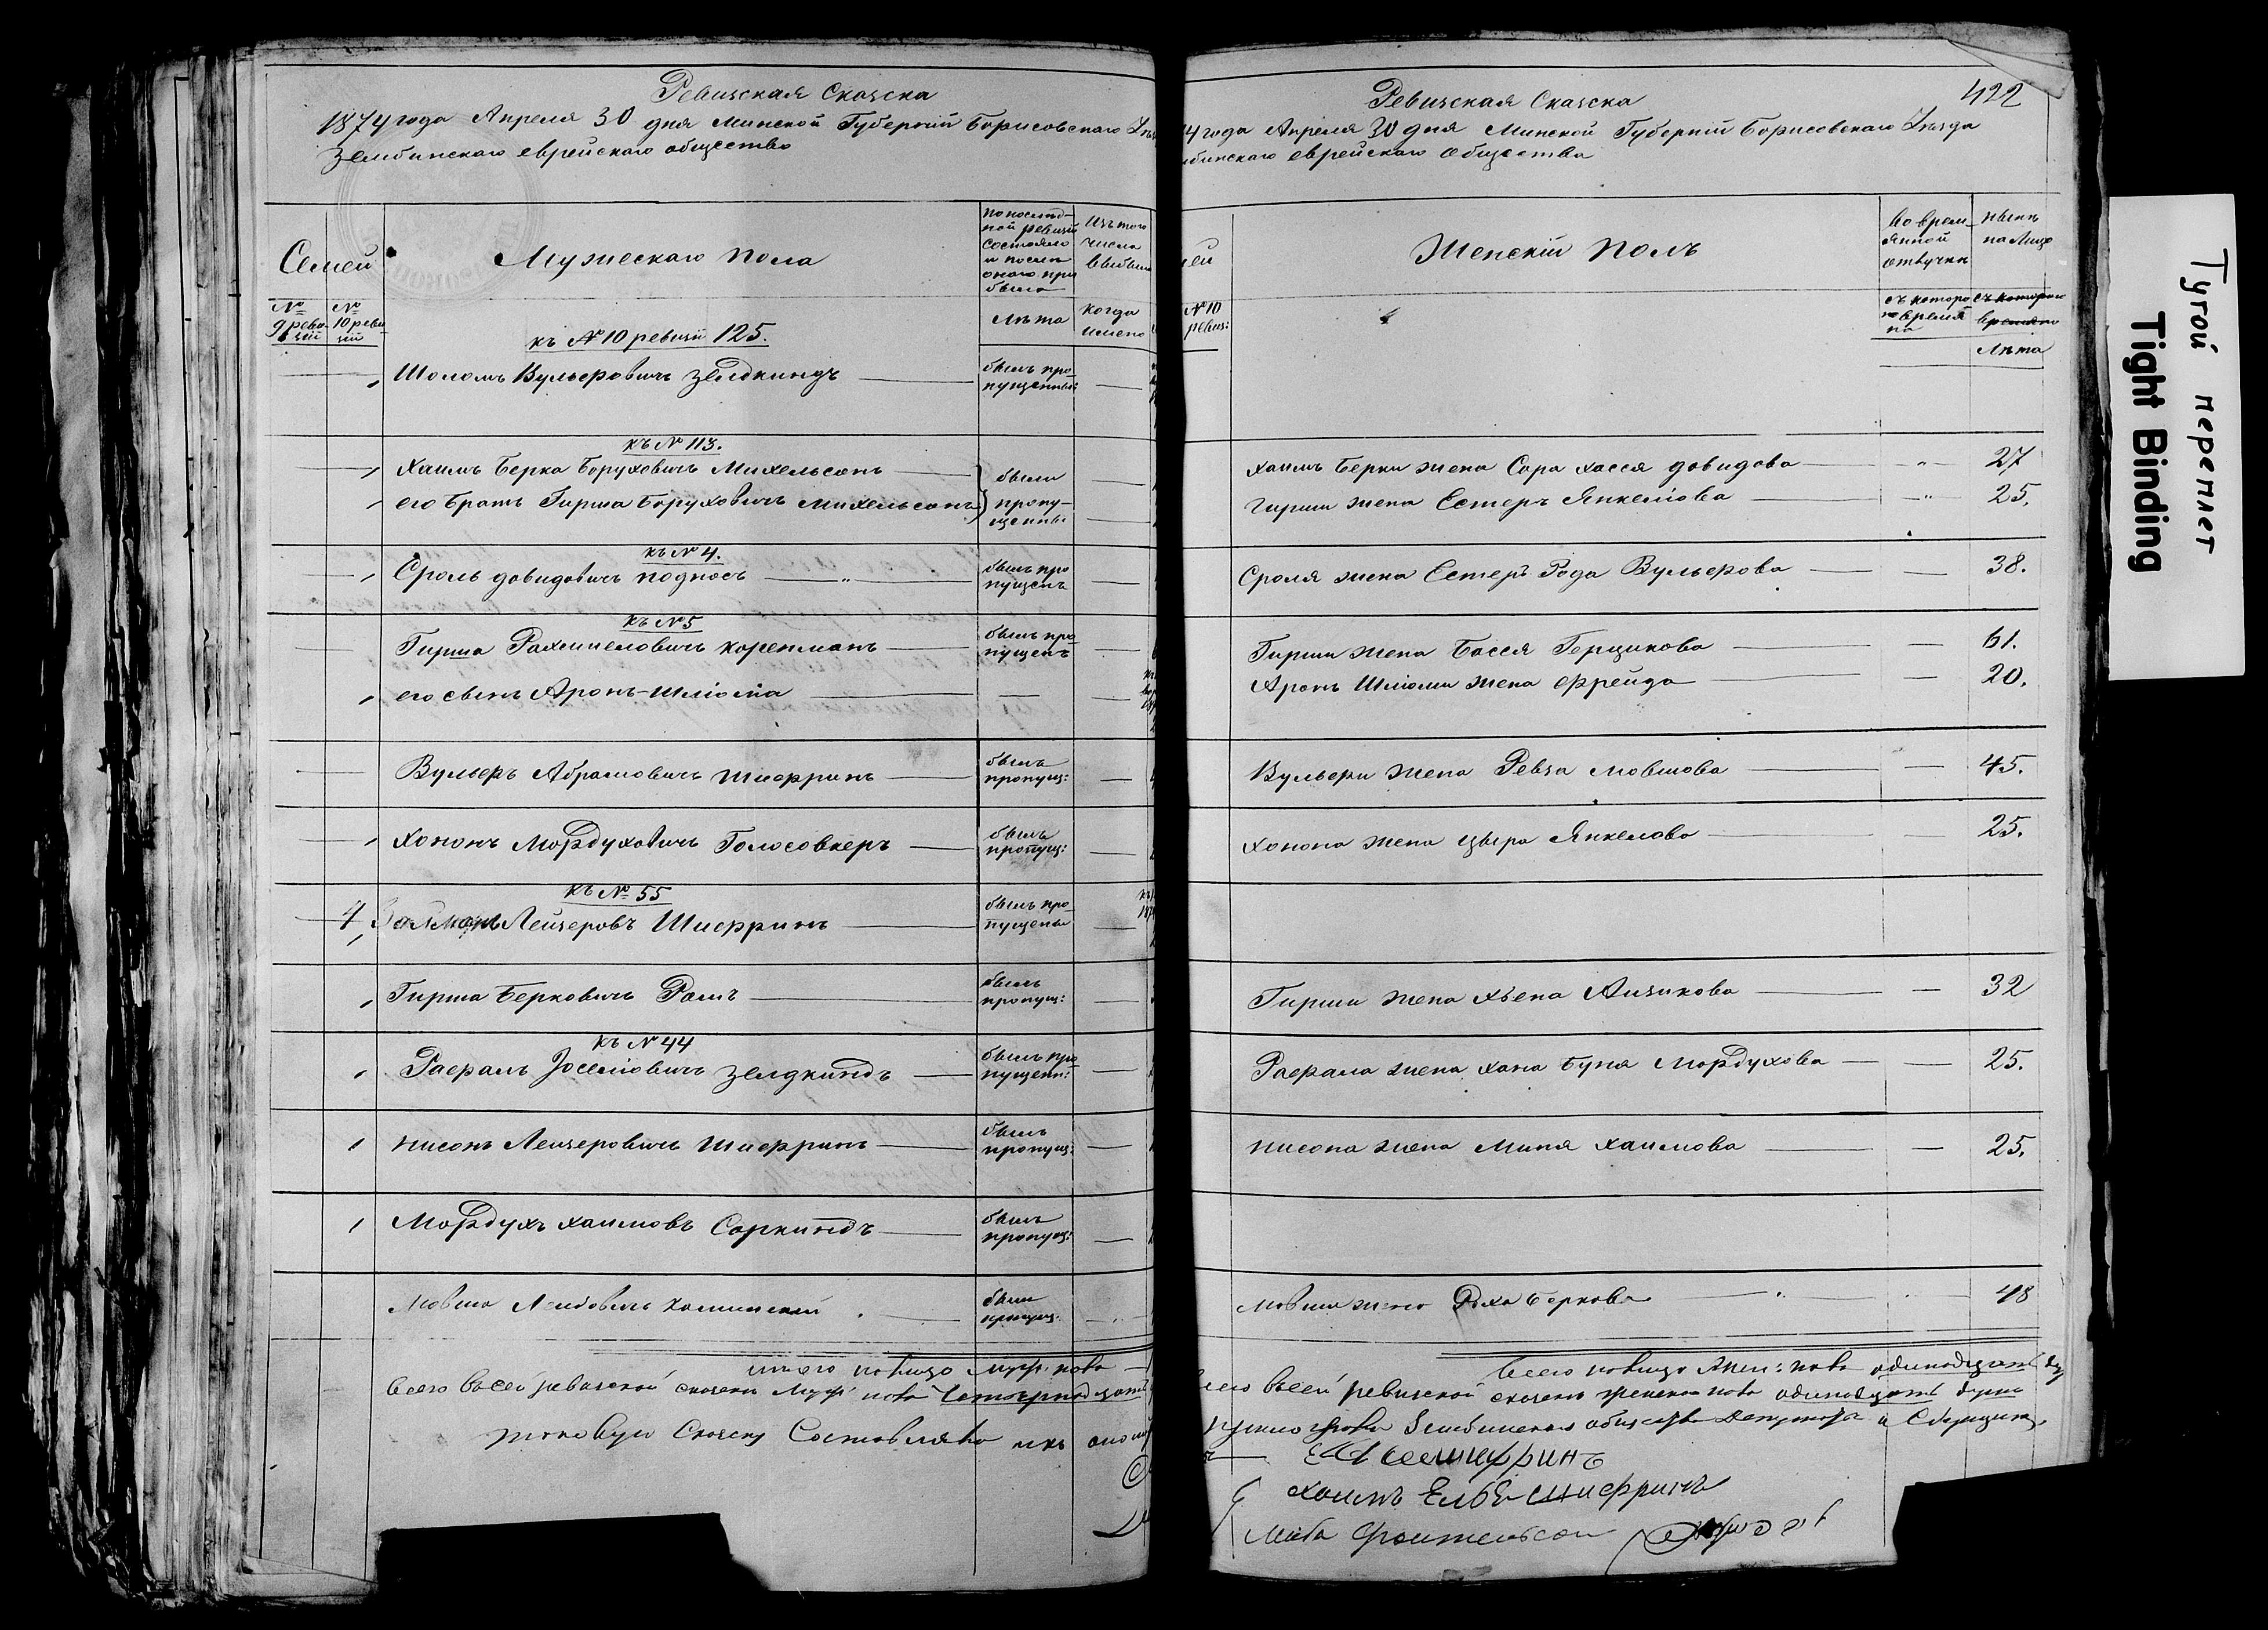 Ревизская Сказска
1874 года Апреля 30 дня Минской Губерній Борисовскаго
Зембинскаго еврейскаго общество
Семей
Мужескаго пола
по послѣд-
ней ревизіи
состояло
и послѣ
онаго при
было
Изъ того
числа
выбыло
№
9 реви-
зіи
№
10 реви-
зіи
къ №10 ревизіи 125.
Лѣта
когда
имено
Шоломъ Вульфовичъ Зелдкиндъ
былъ про-
пущенны:
къ № 113.
Хаимъ Берка Боруховичъ Михельсонъ
его братъ Гирша Боруховичъ Михельсонъ
были
пропу-
щенны
къ № 4.
Сроль довидовичъ подносъ
былъ про
пущенъ
къ № 5
Гирша Рахмиеловичъ коренманъ
былъ про-
пущенъ
его сынъ Аронъ-Шліома
Вульфъ Абрамовичъ Шифринъ
былъ
пропущ:
Хононъ Мордуховичъ Голосовкеръ
былъ
пропущ:
къ № 55
4 Залманъ Лейзеровъ Шифринъ
былъ про-
пущены
Гирша Берковичъ Рамъ
былъ
пропущ:
къ № 44
Рафалъ Іоселіовичъ Зелдкиндъ
былъ про
пущенн:
Нисонъ Лейзеровичъ Шифринъ
былъ
пропущ:
Мордухъ Хаимовъ Соркиндъ
былъ
пропущ:
Мовша Лейбовичъ
былъ
пропущ:
итого на лицо муж. пола
Всего въ сей ревизской сказски Муж. пола Четырнадцать
таковую Сказску Составляло
Ревизская Сказска
422
4 года Апреля 30 дня Минской Губерній Борисовскаго Уезда
мбинскаго еврейскаго общества
ей
Женскій полъ
во врем-
янной
отлучки
нынѣ
на лицо
№10
ревиз:
съ которо
го время
на
съ котораго
времяни
Лѣта
Хаимъ Берки жена Сора Хасся довидова 27
Гирши жена Естеръ Янкеліова 25.
Сроля жена Естеръ Рода Вульфова 38.
Гирши жена Бася Герцикова 61.
Аронъ Шліоми жена Фрейда 20.
Вульфа жена Ревза Мовшова 45.
Хонона жена Цыра Янкелова 25.
Гирши жена Хьена Аизикова 32
Рафала жена Хана Буня Мордухова 25.
Нисона жена Миня Хаимова 25.
Мовши жена Риха Беркова 48
Всего на лицо жен: пола одинадцать
его въ сей ревизской сказкѣ женска пола одинадцать душъ
Зембинскаго общества Депутаты и Сборщикъ
Шифринъ
Хаимъ Шифринъ
Тугой переплет
Tight Binding